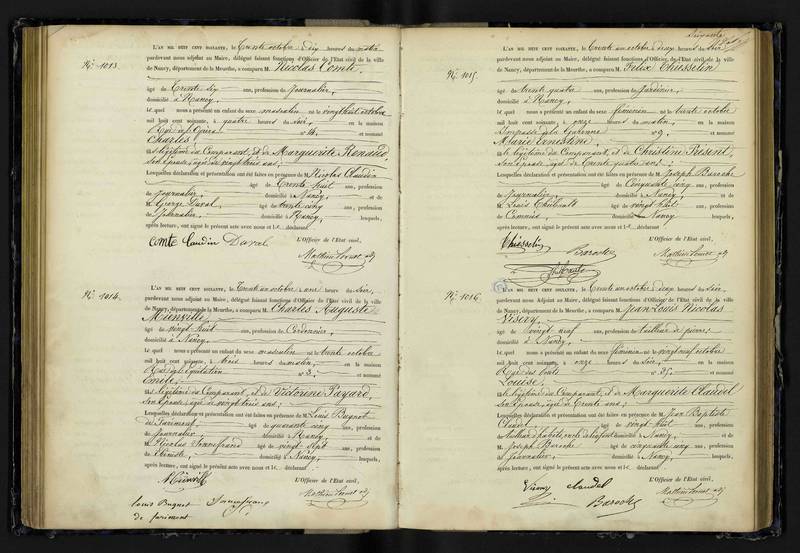 N.º 1013.
L'AN MIL HUIT CENT SOIXANTE, le Trente octobre dix heures du matin
pardevant nous adjoint au Maire, délégué faisant fonctions d'Officier de l'Etat civil de la ville
de Nancy, département de la Meurthe, a comparu M. Nicolas Comte,
âgé de Trente six ans, profession de Journalier,
domicilié à Nancy,
lequel nous a présenté un enfant du sexe masculin né le vingt huit octobre
mil huit cent soixante, à quatre heures du soir, en la maison
N.º 14, et nommé
Charles
fils légitime du Comparant, et de Marguerite Renauld,
son épouse, âgée de vingt trois ans;
Lesquelles déclaration et présentation ont été faites en présence de M. Nicolas Claudin
âgé de Trente huit ans, profession
de Journalier, domicilié à Nancy, et de
M. George Duval âgé de trente cinq ans, profession
de Journalier, domicilié à Nancy, lesquels,
après lecture, ont signé le présent acte avec nous et le déclarant
L'Officier de l'Etat civil,
Comte Claudin Duval
N.º 1014.
L'AN MIL HUIT CENT SOIXANTE, le Trente un octobre une heure du soir,
pardevant nous Adjoint au Maire, délégué faisant fonctions d'Officier de l'Etat civil de la ville
de Nancy, département de la Meurthe, a comparu M. Charles Auguste
Mienville,
âgé de vingt huit ans, profession de Cordonnier,
domicilié à Nancy,
lequel nous a présenté un enfant du sexe masculin né le trente octobre
mil huit cent soixante, à trois heures du matin, en la maison
Rue de l'Equitation N.º 3, et nommé
Emile,
fils légitime du Comparant, et de Victorine Payard,
son épouse, âgée de vingt trois ans;
Lesquelles déclaration et présentation ont été faites en présence de M. Louis Bugnot
de Farimont, âgé de quarante cinq ans, profession
de Journalier domicilié à Nancy, et de
M. Nicolas âgé de vingt sept ans, profession
de domicilié à Nancy, lesquels,
après lecture, ont signé le présent acte avec nous et le déclarant
L'Officier de l'Etat civil,
Louis Bugnot
de farimont
N.º 1015.
L'AN MIL HUIT CENT SOIXANTE, le Trente un octobre deux heures du soir
pardevant nous adjoint au Maire, délégué faisant fonctions d'Officier de l'Etat civil de la ville
de Nancy, département de la Meurthe, a comparu M. Félix Thiesselin
âgé de trente quatre ans, profession de Jardinier,
domicilié à Nancy,
lequel nous a présenté un enfant du sexe féminin né le trente octobre
mil huit cent soixante, à onze heures du matin, en la maison
Impasse de la Garenne N.º 9, et nommé
Marie Ernestine,
fille légitime du Comparant, et de Christine Present,
son épouse, âgée de Trente quatre ans;
Lesquelles déclaration et présentation ont été faites en présence de M. Joseph Baroche
âgé de Cinquante cinq ans, profession
de Journalier, domicilié à Nancy, et de
M. Louis âgé de vingt huit ans, profession
de Commis, domicilié à Nancy, lesquels,
après lecture, ont signé le présent acte avec nous et le déclarant
L'Officier de l'Etat civil,
Thiesselin Baroche
N.º 1016.
L'AN MIL HUIT CENT SOIXANTE, le Trente un octobre deux heures du soir,
pardevant nous Adjoint au Maire, délégué faisant fonctions d'Officier de l'Etat civil de la ville
de Nancy, département de la Meurthe, a comparu M. Jean Louis Nicolas
âgé de vingt neuf ans, profession de tailleur de pierres,
domicilié à Nancy,
lequel nous a présenté un enfant du sexe féminin né le vingt neuf octobre
mil huit cent soixante, à onze heures du soir, en la maison
N.º 35, et nommé
Louise,
fille légitime du Comparant, et de Marguerite Claudel
son épouse, âgée de Trente
Lesquelles déclaration et présentation ont été faites en présence de M. Jean Baptiste
Claudel âgé de vingt huit ans, profession
de tailleur d'habits, domicilié à Nancy, et de
M. Joseph Baroche âgé de cinquante cinq ans, profession
de Journalier, domicilié à Nancy, lesquels,
après lecture, ont signé le présent acte avec nous et le déclarant
L'Officier de l'Etat civil,
claudel
Baroche